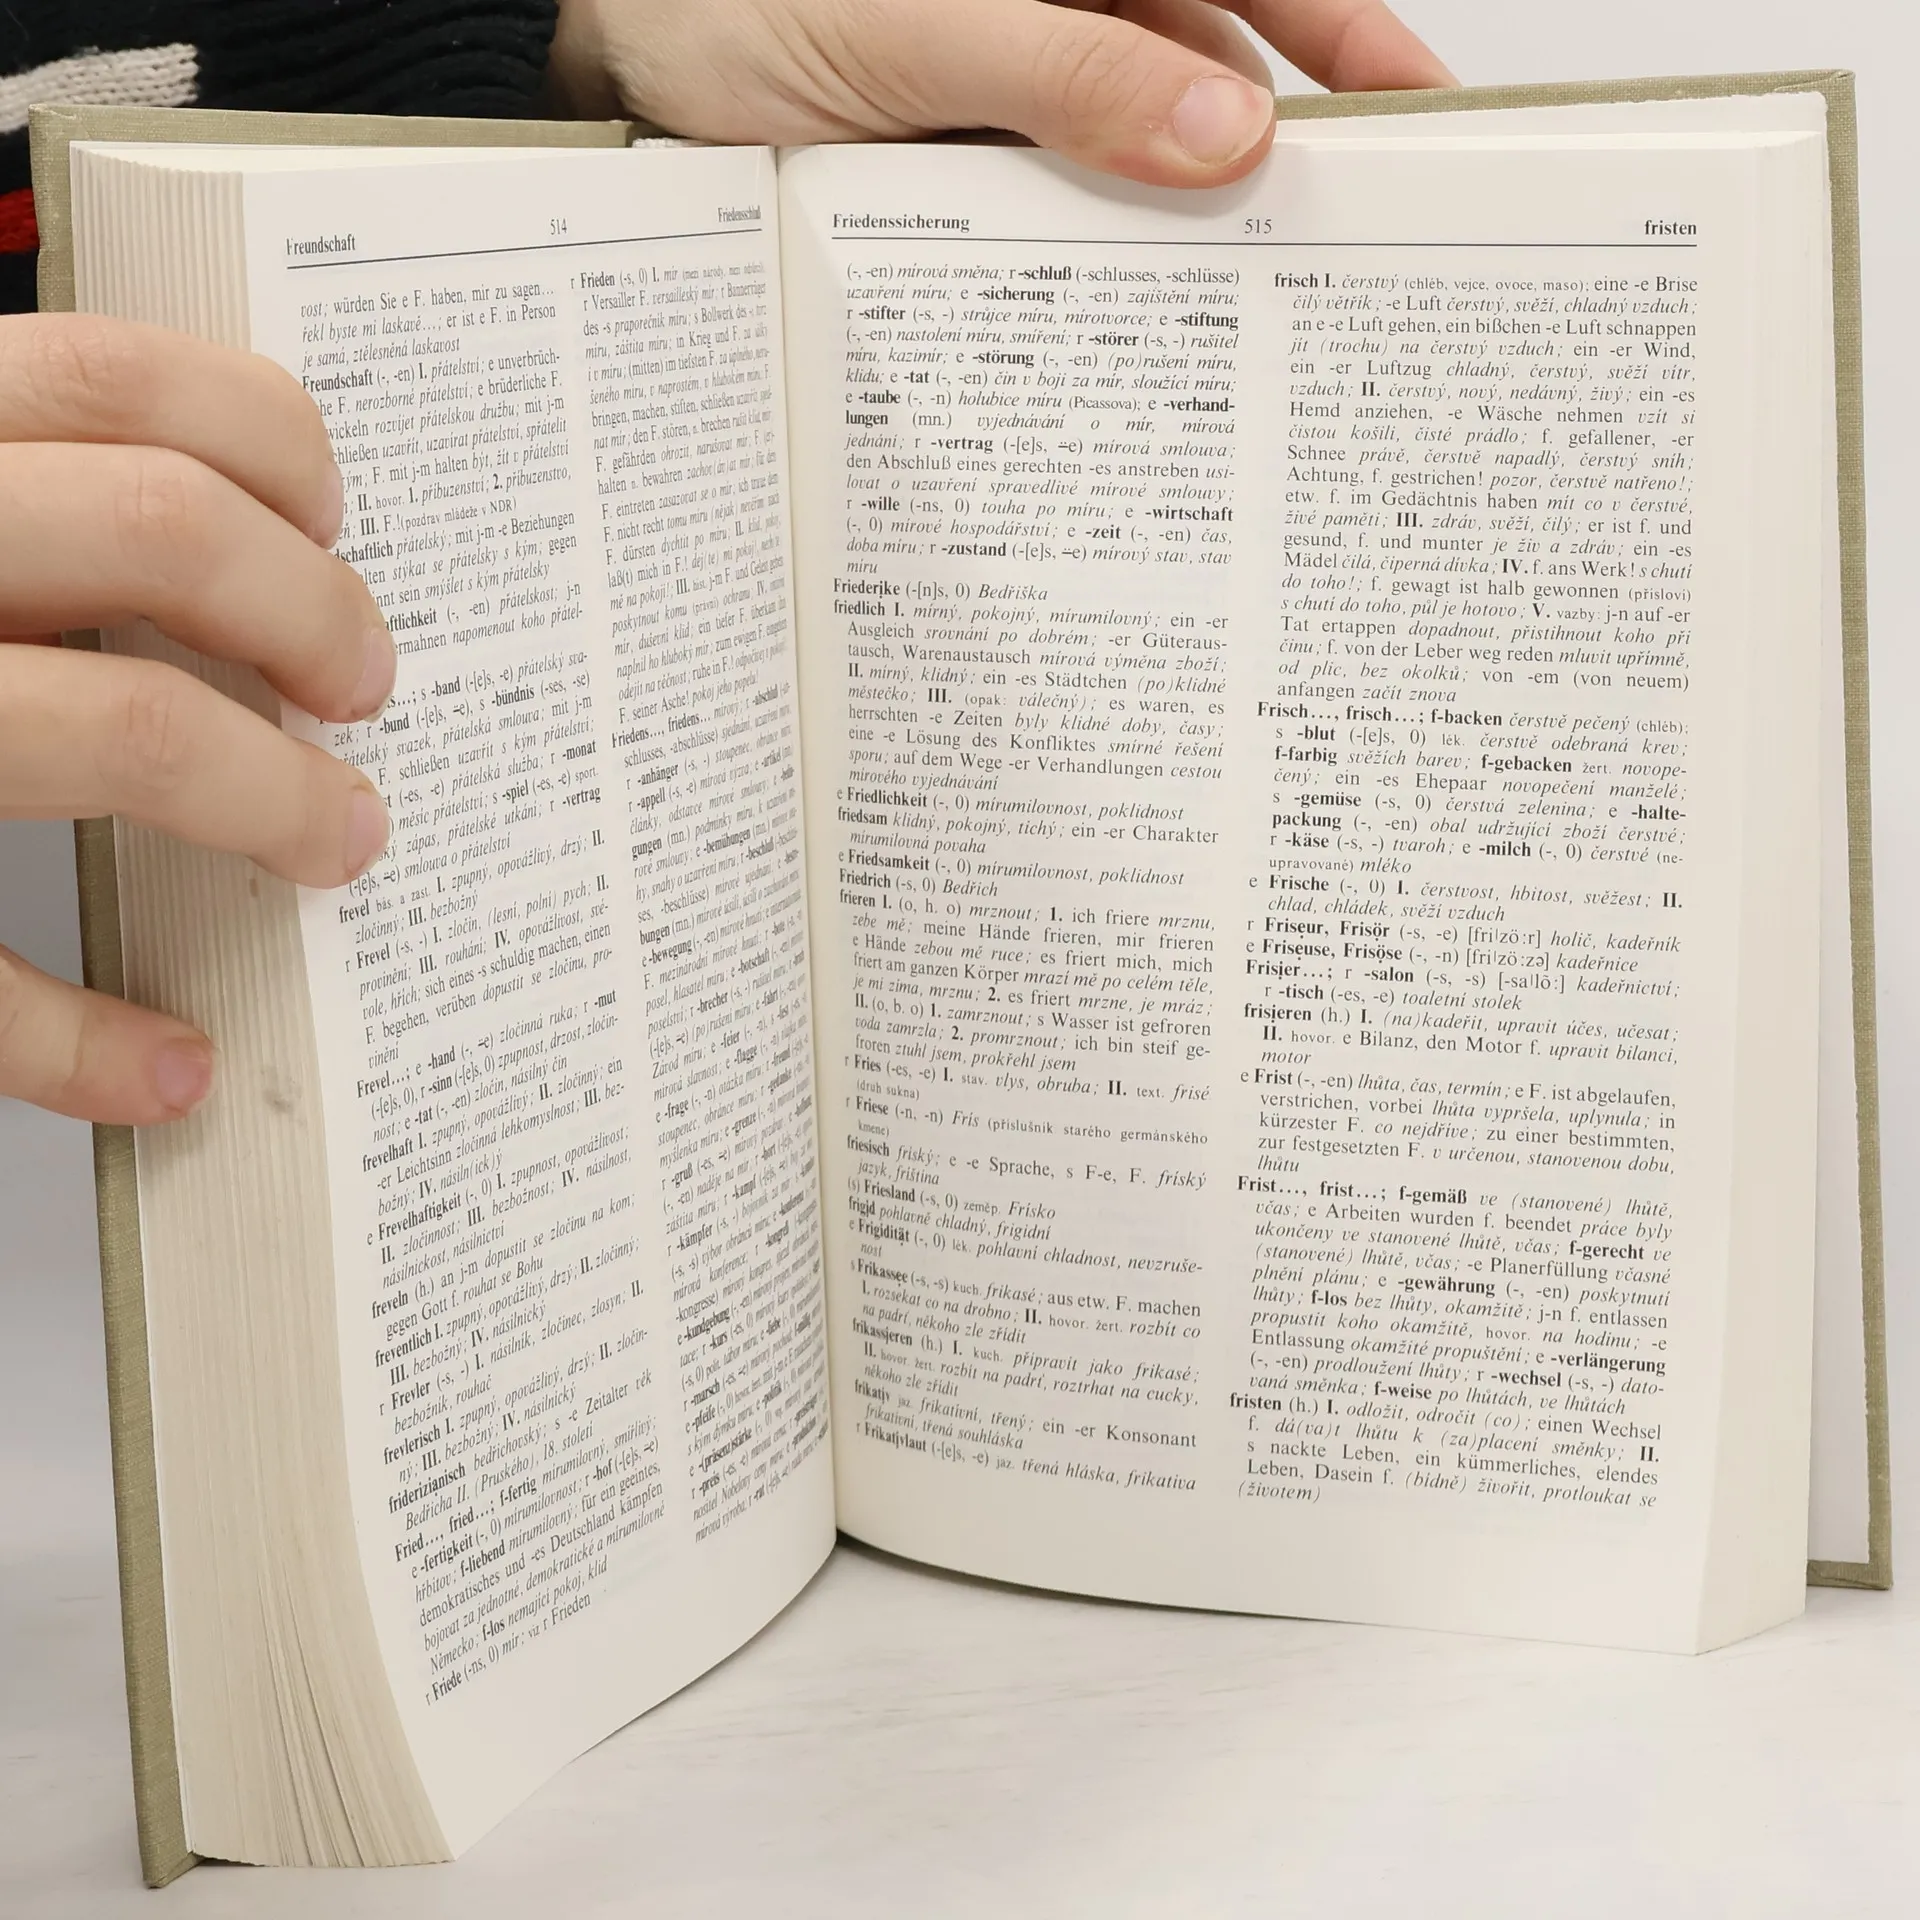 Freundschaft 514 Friedensschluß
vost; würden Sie e F. haben, mir zu sagen...
řekl byste mi laskavě...; er ist e F. in Person
je samá, ztělesněná laskavost
Freundschaft (-, -en) I. přátelství; e unverbrüch-
he F. nerozborné přátelství; e brüderliche F.
wickeln rozvíjet přátelskou družbu; mit j-m
hließen uzavřít, uzavírat přátelství, spřátelit
ým; F. mit j-m halten být, žít v přátelství
; II. hovor. 1. příbuzenství; 2. příbuzenstvo,
; III. F.! (pozdrav mládeže v NDR)
dschaftlich přátelský; mit j-m -e Beziehungen
lten stýkat se přátelsky s kým; gegen
nnt sein smýšlet s kým přátelsky
ftlichkeit (-, -en) přátelskost; j-n
ermahnen napomenout koho přátel-
s...; s -band (-[e]s, -e) přátelský sva-
zek; r -bund (-[e]s, ⸚e), s -bündnis (-ses, -se)
přátelský svazek, přátelská smlouva; mit j-m
F. schließen uzavřít s kým přátelství;
t (-es, -e) přátelská služba; r -monat
měsíc přátelství; s -spiel (-es, -e) sport.
ký zápas, přátelské utkání; r -vertrag
(-[e]s, ⸚e) smlouva o přátelství
frevel bás. a zast. I. zpupný, opovážlivý, drzý; II.
zločinný; III. bezbožný
r Frevel (-s, -) I. zločin, (lesní, polní) pych; II.
provinění; III. rouhání; IV. opovážlivost, své-
vole, hřích; sich eines -s schuldig machen, einen
F. begehen, verüben dopustit se zločinu, pro-
vinění
Frevel...; e -hand (-, ⸚e) zločinná ruka; r -mut
(-[e]s, 0), r -sinn (-[e]s, 0) zpupnost, drzost, zločin-
nost; e -tat (-, -en) zločin, násilný čin
frevelhaft I. zpupný, opovážlivý; II. zločinný; ein
-er Leichtsinn zločinná lehkomyslnost; III. bez-
božný; IV. násiln(ick)ý
e Frevelhaftigkeit (-, 0) I. zpupnost, opovážlivost;
II. zločinnost; III. bezbožnost; IV. násilnost,
násilnickost, násilnictví
freveln (h.) an j-m dopustit se zločinu na kom;
gegen Gott f. rouhat se Bohu
freventlich I. zpupný, opovážlivý, drzý; II. zločinný;
III. bezbožný; IV. násilnický
r Frevler (-s, -) I. násilník, zločinec, zlosyn; II.
bezbožník, rouhač
frevlerisch I. zpupný, opovážlivý, drzý; II. zločin-
ný; III. bezbožný; IV. násilnický
friderizianisch bedřichovský; s -e Zeitalter věk
Bedřicha II. (Pruského), 18. století
Fried..., fried...; f-fertig mírumilovný, smířlivý;
e -fertigkeit (-, 0) mírumilovnost; r -hof (-[e]s, ⸚e)
hřbitov; f-liebend mírumilovný; für ein geeintes,
demokratisches und -es Deutschland kämpfen
bojovat za jednotné, demokratické a mírumilovné
Německo; f-los nemající pokoj, klid
r Friede (-ns, 0) mír; viz r Frieden
r Frieden (-s, 0) I. mír
r Versailler F. versailleský mír; r Bannerträger
des -s praporečník míru; s Bollwerk des -s tvrz
míru, záštita míru; in Krieg und F. za války
i v míru; (mitten) im tiefsten F. za úplného, neru-
šeného míru, v naprostém, v hlubokém míru; F.
bringen, machen, stiften, schließen uzavřít
nat mír; den F. stören, n. brechen rušit klid, mír;
F. gefährden ohrozit, narušovat mír; F.
halten n. bewahren zachov(áv)at mír; für den
F. eintreten zasazovat se o mír; ich traue dem
F. nicht recht tomu míru (nějak) nevěřím
F. dürsten dychtit po míru; II. klid, pokoj
laß(t) mich in F.! dej(te) mi pokoj!
mě na pokoji!; III. hist. j-m F. und Geleit geben
poskytnout komu (právní) ochranu; IV.
mír, duševní klid; ein tiefer F. überkam ihn
naplnil ho hluboký mír; zum ewigen F. eingehen
odejít na věčnost; ruhe in F.! odpočívej v pokoji!
F. seiner Asche! pokoj jeho popelu!
Friedens..., friedens... mírový; r -abschluß
schlusses, -abschlüsse) sjednání, uzavření míru
r -anhänger (-s, -) stoupenec, obránce míru
r -appell (-s, -e) mírová výzva; e -artikel
články, odstavce mírové smlouvy
gungen (mn.) podmínky míru
rové smlouvy; e -bemühungen (mn.)
hy, snahy o uzavření míru; r -beschluß
ses, -beschlüsse) mírové ujednání
bungen (mn.) mírové úsilí, úsilí o zachování míru
e -bewegung (-, -en) mírové hnutí
F. mezinárodní mírové hnutí; r -bote
posel, hlasatel míru; e -botschaft
poselství; r -brecher (-s, -) rušitel míru
(-[e]s, ⸚e) (po)rušení míru
Závod míru; e -feier (-, -n)
mírová slavnost; e -flagge (-, -n)
e -frage (-, -n) otázka míru; r -freund
stoupenec, obránce míru; r -gedanke
myšlenka míru; e -grenze (-, -n)
r -gruß (-es, ⸚e) mírový pozdrav
(-, -en) naděje na mír; r -hort
záštita míru; r -kampf
r -kämpfer (-s, -) bojovník za mír
(-s, -s) výbor obránců míru
mírová konference; r -kongreß
-kongresse) mírový kongres
e -kundgebung (-, -en)
r -kurs (-es, 0)
r -marsch
e -pfeife (-, 0)
s kým dýmku míru; e -politik
e -(präsenz)stärke
r -preis (-es, -e)
nositel Nobelovy ceny míru
mírová výroba; r -rat
Friedenssicherung 515 fristen
(-, -en) mírová směna; r -schluß (-schlusses, -schlüsse)
uzavření míru; e -sicherung (-, -en) zajištění míru;
r -stifter (-s, -) strůjce míru, mírotvorce; e -stiftung
(-, -en) nastolení míru, smíření; r -störer (-s, -) rušitel
míru, kazimír; e -störung (-, -en) (po)rušení míru,
klidu; e -tat (-, -en) čin v boji za mír, sloužící míru;
e -taube (-, -n) holubice míru (Picassova); e -verhand-
lungen (mn.) vyjednávání o mír, mírová
jednání; r -vertrag (-[e]s, ⸚e) mírová smlouva;
den Abschluß eines gerechten -es anstreben usi-
lovat o uzavření spravedlivé mírové smlouvy;
r -wille (-ns, 0) touha po míru; e -wirtschaft
(-, 0) mírové hospodářství; e -zeit (-, -en) čas,
doba míru; r -zustand (-[e]s, ⸚e) mírový stav, stav
míru
Friederike (-[n]s, 0) Bedřiška
friedlich I. mírný, pokojný, mírumilovný; ein -er
Ausgleich srovnání po dobrém; -er Güteraus-
tausch, Warenaustausch mírová výměna zboží;
II. mírný, klidný; ein -es Städtchen (po)klidné
městečko; III. (opak: válečný); es waren, es
herrschten -e Zeiten byly klidné doby, časy;
eine -e Lösung des Konfliktes smírné řešení
sporu; auf dem Wege -er Verhandlungen cestou
mírového vyjednávání
e Friedlichkeit (-, 0) mírumilovnost, poklidnost
friedsam klidný, pokojný, tichý; ein -er Charakter
mírumilovná povaha
e Friedsamkeit (-, 0) mírumilovnost, poklidnost
Friedrich (-s, 0) Bedřich
frieren I. (o, h. o) mrznout; 1. ich friere mrznu,
zebe mě; meine Hände frieren, mir frieren
e Hände zebou mě ruce; es friert mich, mich
friert am ganzen Körper mrazí mě po celém těle,
je mi zima, mrznu; 2. es friert mrzne, je mráz;
II. (o, b. o) 1. zamrznout; s Wasser ist gefroren
voda zamrzla; 2. promrznout; ich bin steif ge-
froren ztuhl jsem, prokřehl jsem
r Fries (-es, -e) I. stav. vlys, obruba; II. text. frisé
(druh sukna)
r Friese (-n, -n) Frís (příslušník starého germánského
kmene)
friesisch fríský; e -e Sprache, s F-e, F. fríský
jazyk, fríština
(s) Friesland (-s, 0) zeměp. Frísko
frigid pohlavně chladný, frigidní
e Frigidität (-, 0) lék. pohlavní chladnost, nevzruše-
nost
s Frikassee (-s, -s) kuch. frikasé; aus etw. F. machen
I. rozsekat co na drobno; II. hovor. žert. rozbít co
na padrť, někoho zle zřídit
frikassieren (h.) I. kuch. připravit jako frikasé;
II. hovor. žert. rozbít na padrť, roztrhat na cucky,
někoho zle zřídit
frikativ jaz. frikativní, třený; ein -er Konsonant
frikativní, třená souhláska
r Frikativlaut (-[e]s, -e) jaz. třená hláska, frikativa
frisch I. čerstvý (chléb, vejce, ovoce, maso); eine -e Brise
čilý větřík; -e Luft čerstvý, svěží, chladný vzduch;
an e -e Luft gehen, ein bißchen -e Luft schnappen
jít (trochu) na čerstvý vzduch; ein -er Wind,
ein -er Luftzug chladný, čerstvý, svěží vítr,
vzduch; II. čerstvý, nový, nedávný, živý; ein -es
Hemd anziehen, -e Wäsche nehmen vzít si
čistou košili, čisté prádlo; f. gefallener, -er
Schnee právě, čerstvě napadlý, čerstvý sníh;
Achtung, f. gestrichen! pozor, čerstvě natřeno!;
etw. f. im Gedächtnis haben mít co v čerstvé,
živé paměti; III. zdráv, svěží, čilý; er ist f. und
gesund, f. und munter je živ a zdráv; ein -es
Mädel čilá, čiperná dívka; IV. f. ans Werk! s chutí
do toho!; f. gewagt ist halb gewonnen (přísloví)
s chutí do toho, půl je hotovo; V. vazby: j-n auf -er
Tat ertappen dopadnout, přistihnout koho při
činu; f. von der Leber weg reden mluvit upřímně,
od plic, bez okolků; von -em (von neuem)
anfangen začít znova
Frisch..., frisch...; f-backen čerstvě pečený (chléb);
s -blut (-[e]s, 0) lék. čerstvě odebraná krev;
f-farbig svěžích barev; f-gebacken žert. novope-
čený; ein -es Ehepaar novopečení manželé;
s -gemüse (-s, 0) čerstvá zelenina; e -halte-
packung (-, -en) obal udržující zboží čerstvé;
r -käse (-s, -) tvaroh; e -milch (-, 0) čerstvé (ne-
upravované) mléko
e Frische (-, 0) I. čerstvost, hbitost, svěžest; II.
chlad, chládek, svěží vzduch
r Friseur, Frisör (-s, -e) [friˈzö:r] holič, kadeřník
e Friseuse, Frisöse (-, -n) [friˈzö:zə] kadeřnice
Frisier...; r -salon (-s, -s) [-saˈlõ:] kadeřnictví;
r -tisch (-es, -e) toaletní stolek
frisieren (h.) I. (na)kadeřit, upravit účes, učesat;
II. hovor. e Bilanz, den Motor f. upravit bilanci,
motor
e Frist (-, -en) lhůta, čas, termín; e F. ist abgelaufen,
verstrichen, vorbei lhůta vypršela, uplynula; in
kürzester F. co nejdříve; zu einer bestimmten,
zur festgesetzten F. v určenou, stanovenou dobu,
lhůtu
Frist..., frist...; f-gemäß ve (stanovené) lhůtě,
včas; e Arbeiten wurden f. beendet práce byly
ukončeny ve stanovené lhůtě, včas; f-gerecht ve
(stanovené) lhůtě, včas; -e Planerfüllung včasné
plnění plánu; e -gewährung (-, -en) poskytnutí
lhůty; f-los bez lhůty, okamžitě; j-n f. entlassen
propustit koho okamžitě, hovor. na hodinu; -e
Entlassung okamžité propuštění; e -verlängerung
(-, -en) prodloužení lhůty; r -wechsel (-s, -) dato-
vaná směnka; f-weise po lhůtách, ve lhůtách
fristen (h.) I. odložit, odročit (co); einen Wechsel
f. dá(va)t lhůtu k (za)placení směnky; II.
s nackte Leben, ein kümmerliches, elendes
Leben, Dasein f. (bídně) živořit, protloukat se
(životem)